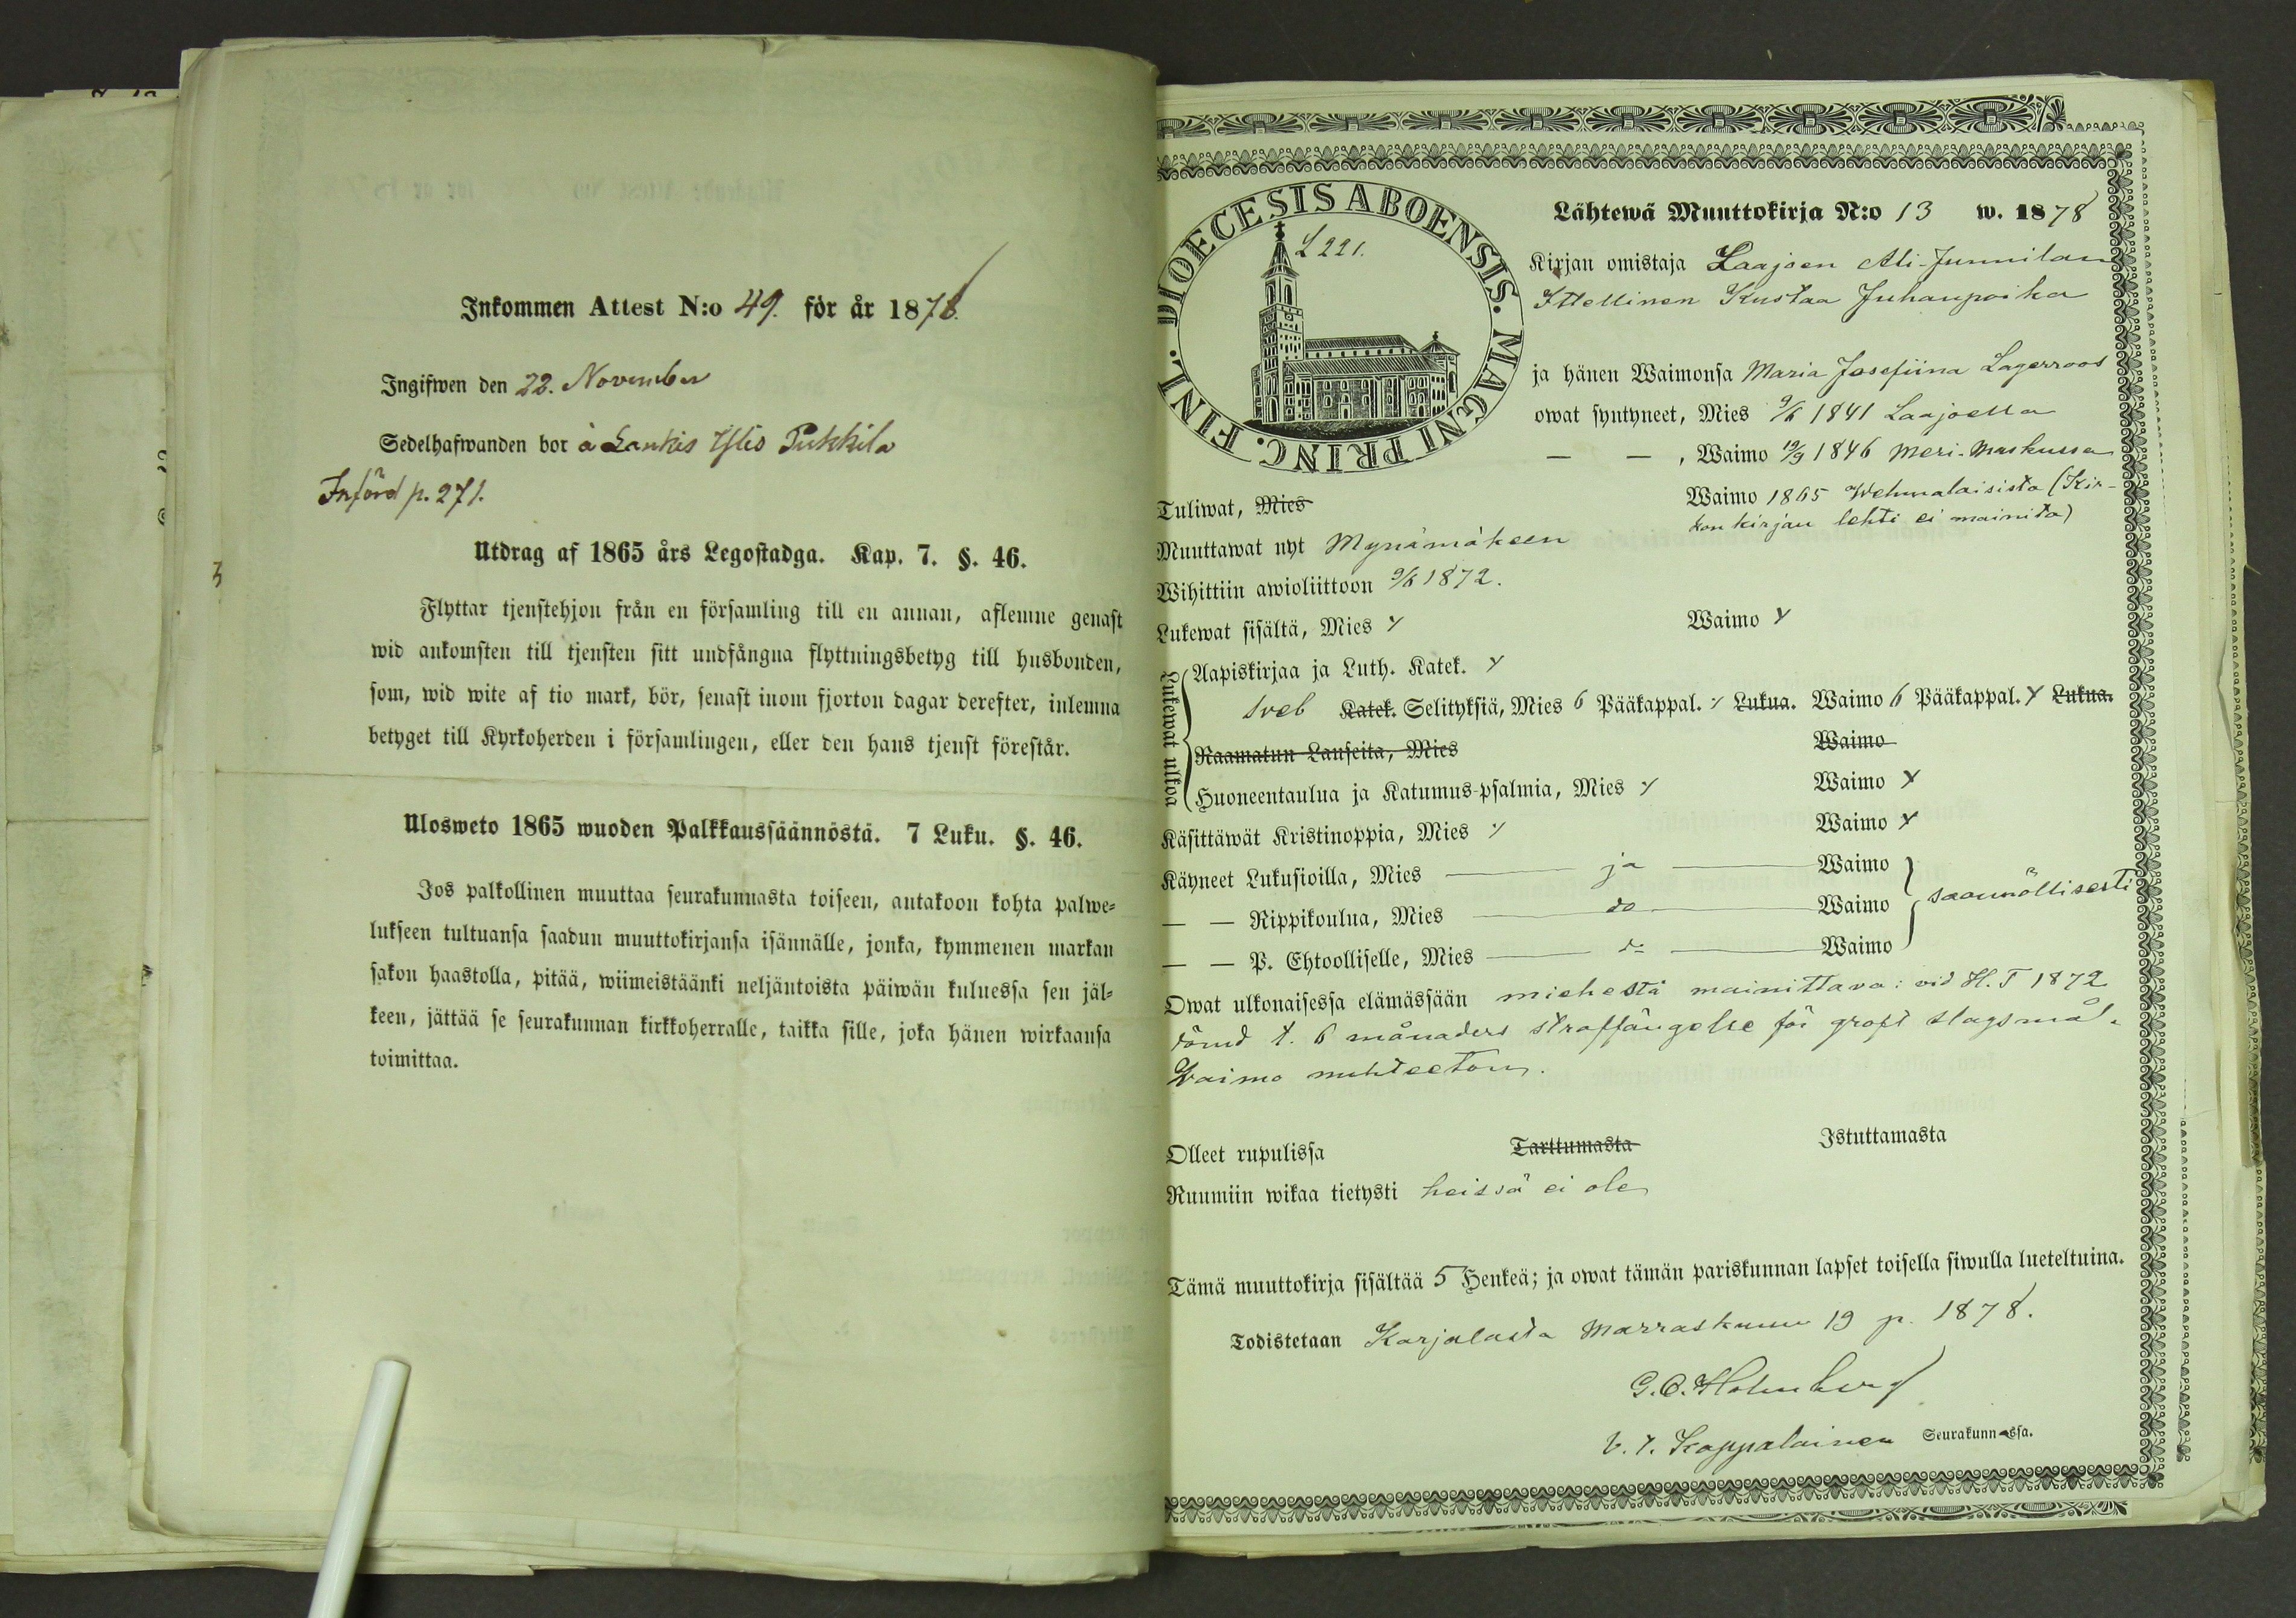 Inkommen Attest N:o 49. för år 1878.
Ingifwen den 22. November
Sedelhafwanden bor å Lankis Yllö Pukkila
Införd p. 271.
Utdrag af 1865 års Legostadga. Kap. 7. §. 46.
Flyttar tjenstehjon från en församling till en annan, aflemne genast
wid ankomsten till tjensten sitt undfångna flyttningsbetyg till husbonden,
som, wid wite af tio mark, bör, senast inom fjorton dagar derefter, inlemna
betyget till Kyrkoherden i församlingen, eller den hans tjenst förestår.
Ulosweto 1865 wuoden Palkkaussäännöstä. 7 Luku. §. 46.
Jos palkollinen muuttaa seurakunnasta toiseen, antakoon kohta palwe-
lukseen tultuansa saadun muuttokirjansa isännälle, jonka, kymmenen markan
sakon haastolla, pitää, wiimeistäänki neljäntoista päiwän kuluessa sen jäl-
keen, jättää se seurakunnan kirkkoherralle, taikka sille, joka hänen wirkaansa
toimittaa.
DIOECESIS ABOENSIS. MAGNI PRINC. FINL.
L 221.
Lähtewä Muuttokirja N:o 13 w. 1878
Kirjan omistaja Laajoen Ali-Junnilan
Ittellinen Kustaa Juhanpoika
ja hänen Waimonsa Maria Josefiina Lagerroos
owat syntyneet, Mies 9/6 1841 Laajoella
— — , Waimo 19/9 1846 Meri-Maskussa
Tuliwat, Mies Waimo 1865 Wehmalaisista (Kir-
kon kirjan lehti ei mainita)
Muuttawat nyt Mynämäkeen
Wihittiin awioliittoon 9/6 1872.
Lukewat sisältä, Mies Waimo
Lukewat ulkoa
Aapiskirjaa ja Luth. Katek.
Sveb Katek. Selityksiä, Mies 6 Pääkappal. Lukua. Waimo 6 Pääkappal. Lukua.
Raamatun Lauseita, Mies Waimo
Huoneentaulua ja Katumus-psalmia, Mies Waimo
Käsittäwät Kristinoppia, Mies Waimo
Käyneet Lukusioilla, Mies — ja — Waimo
— — Rippikoulua, Mies — do — Waimo säännöllisesti
— — P. Ehtoolliselle, Mies — do — Waimo
Owat ulkonaisessa elämässään miehestä mainittava: vid H. T 1872
dömd t. 6 månaders straffängelse för groft slagsmål.
Waimo nuhteeton.
Olleet rupulissa Tarttumasta Istuttamasta
Ruumiin wikaa tietysti heissä ei ole
Tämä muuttokirja sisältää 5 Henkeä; ja owat tämän pariskunnan lapset toisella siwulla lueteltuina.
Todistetaan Karjalasta Marraskuun 19 p. 1878.
G. O. Holmberg
v. t. Kappalainen Seurakunnassa.